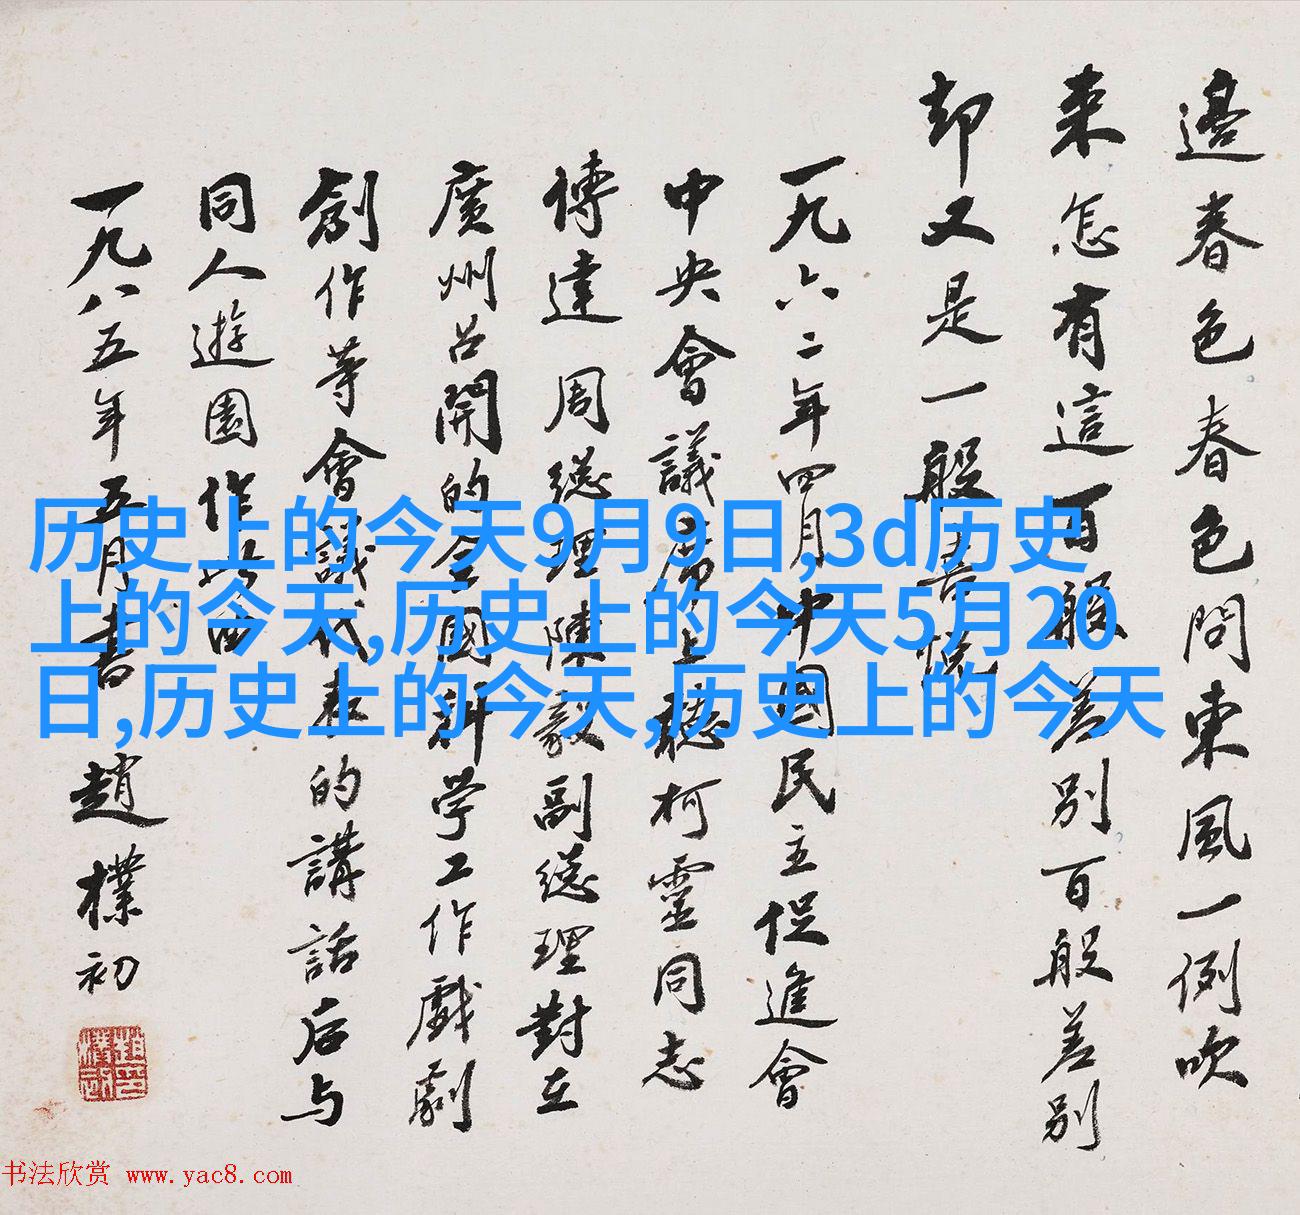 邊春色春色問東風一例吹
來怎有這百般差別百般差別
却又是一般喜悅
一九六二年四月中國民主促進會
中央會議席上聽柯靈同志
傳達周總理陳毅副總理對在
廣州召開的全國科学工作戲劇
創作等會議代表的講話后与
同人遊園作此曲
一九八五年五月書 趙樸初
趙樸初印
历史上的今天9月9日,3d历史
上的今天,历史上的今天5月20
日,历史上的今天,历史上的今天
书法欣赏 www.yac8.com